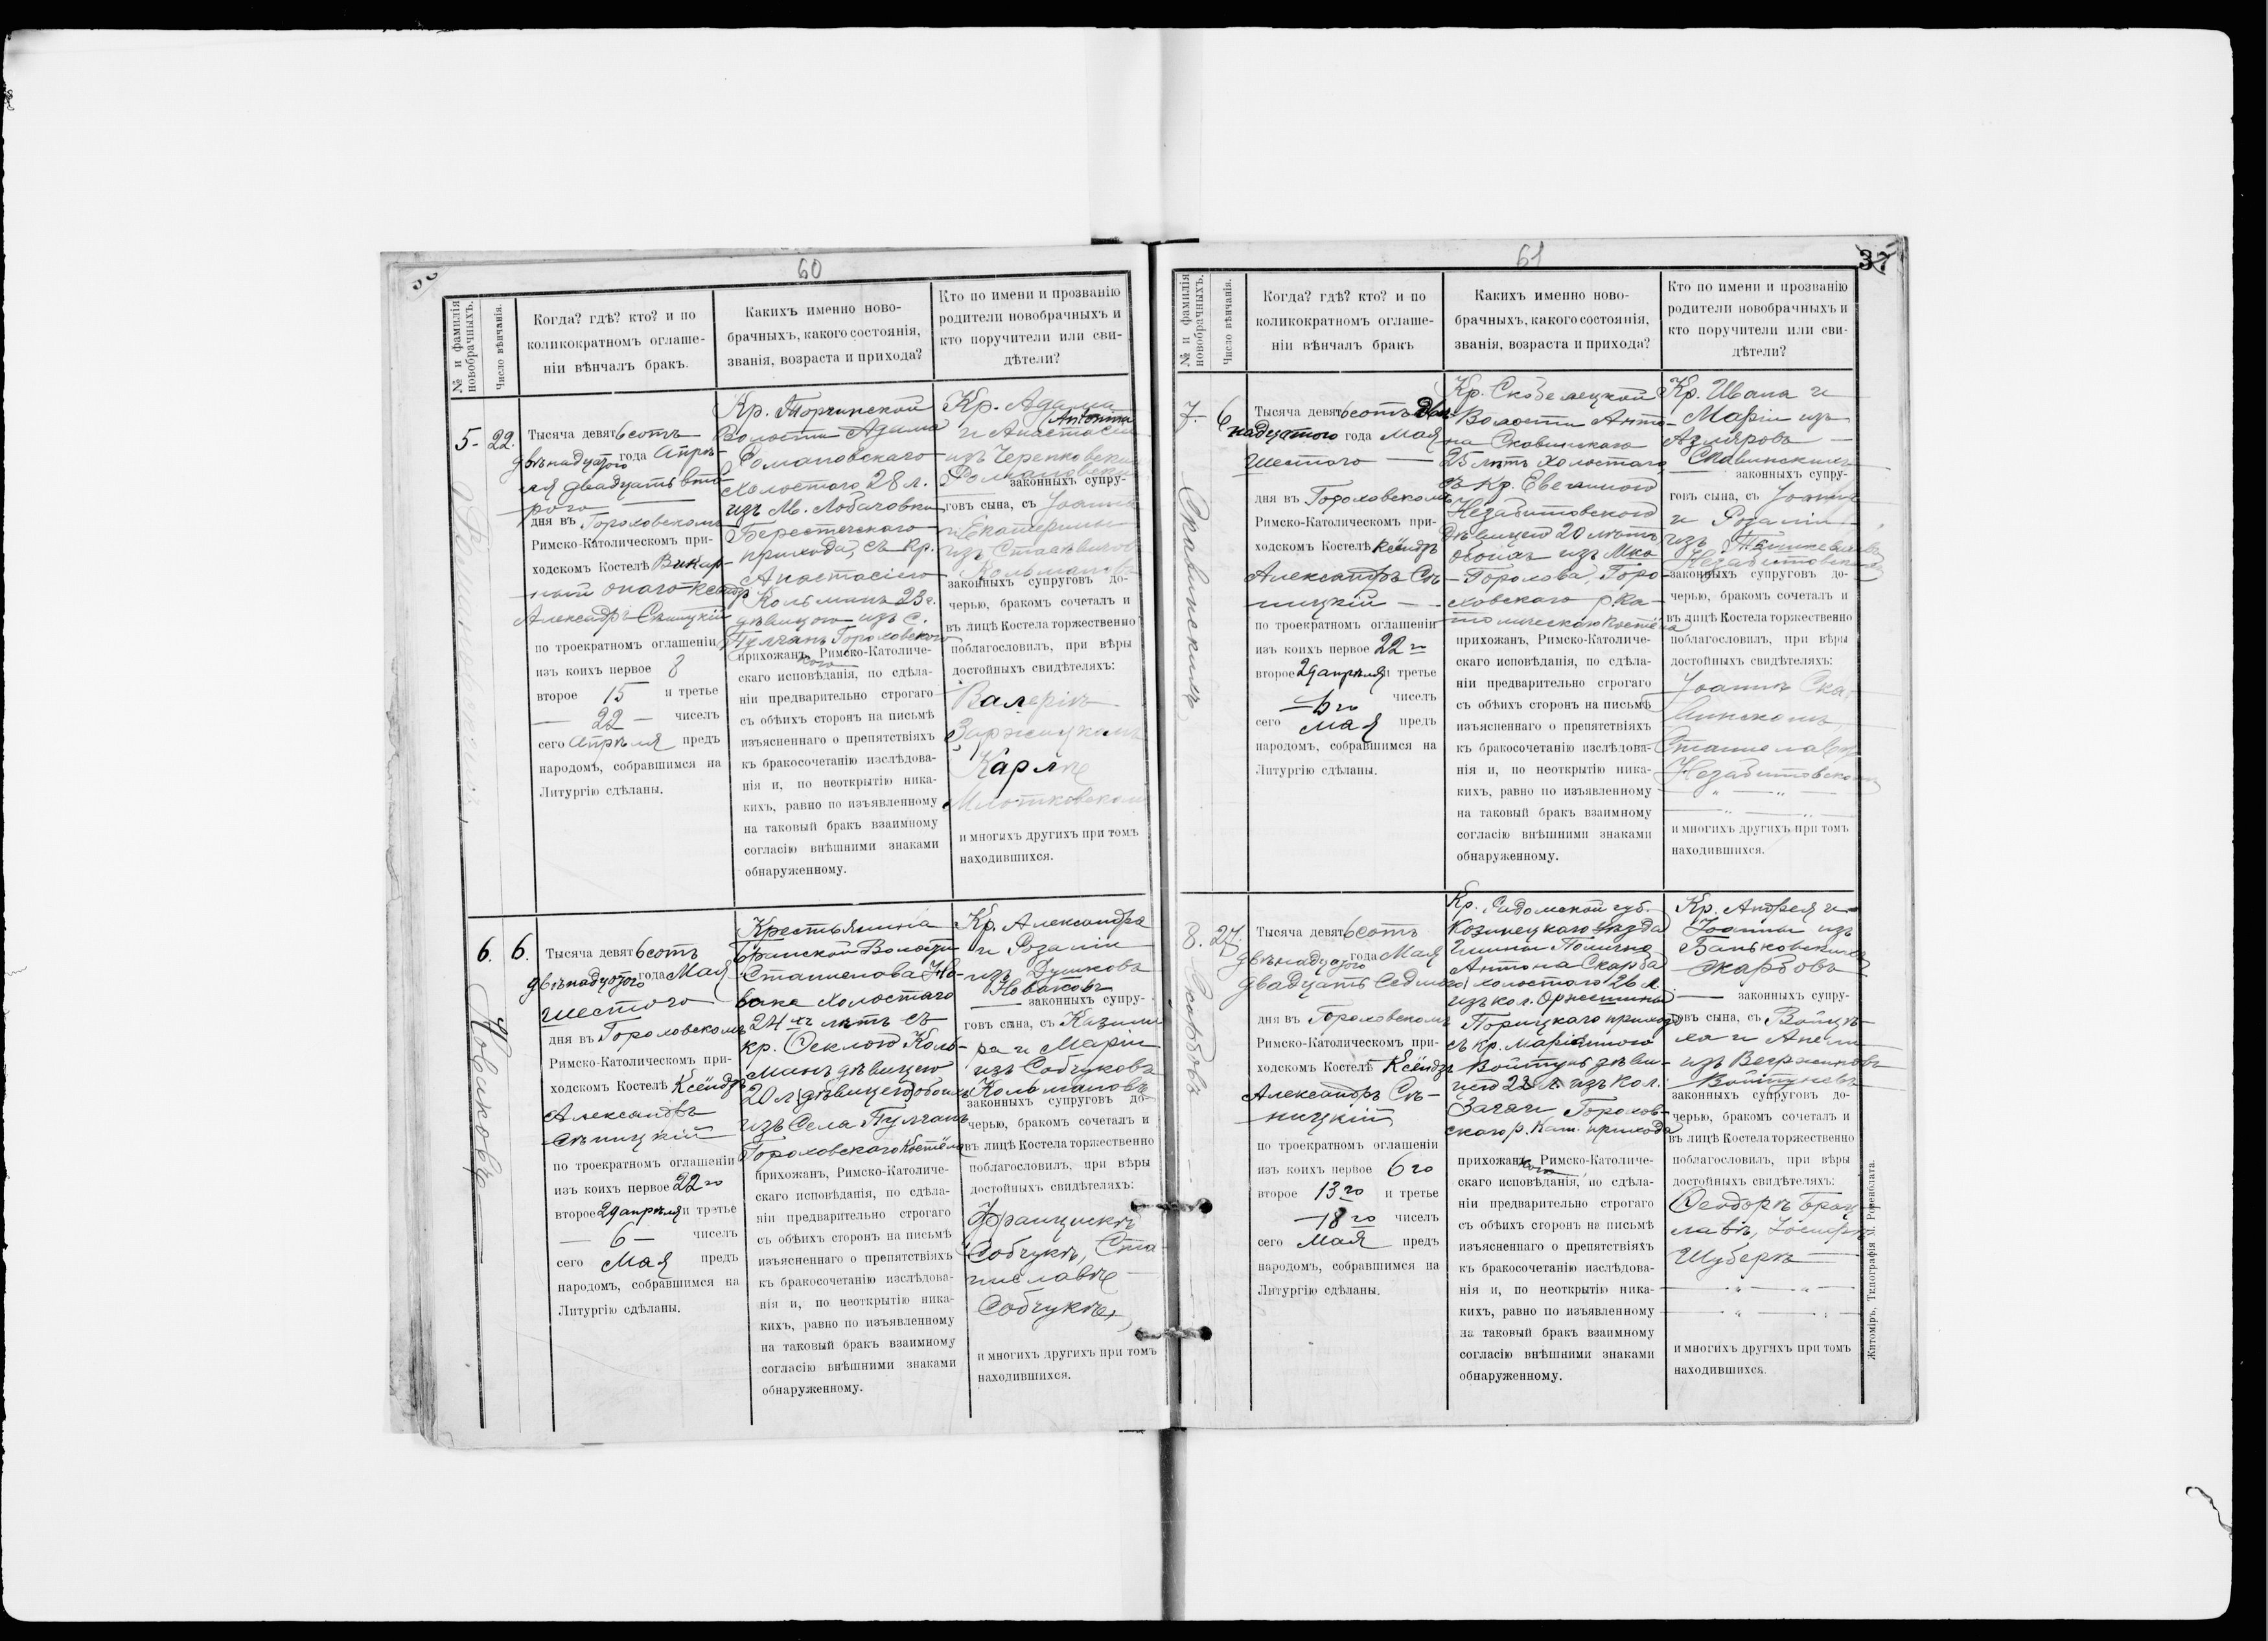 60
№ и фамилія новобрачныхъ.
Число вѣнчанія.
Когда? гдѣ? кто? и по
коликократномъ оглаше-
ніи вѣнчалъ бракъ.
Какихъ именно ново-
брачныхъ, какого состоянія,
званія, возраста и прихода?
Кто по имени и прозванію
родители новобрачныхъ и
кто поручители или сви-
дѣтели?
5-
22.
Тысяча девятьсотъ
двѣнадцатого года Апрѣ-
ля двадцать вто-
рого
дня въ Гороховскомъ
Римско-Католическомъ при-
ходскомъ Костелѣ Викар-
ный онаго Ксендзъ
Александръ Сѣницкій
по троекратномъ оглашеніи
изъ коихъ первое 8
второе 15 и третье
— 22 — чиселъ
сего Апрѣля предъ
народомъ, собравшимся на
Литургію сдѣланы.
Кр. Торчинской
Волости Адама
Романовскаго
холостаго 28 л.
изъ М. Лобачовки
Берестечскаго
прихода, съ кр.
Анастасіею
Кольманъ 23 л.
дѣвицою изъ с.
Пулганъ Гороховского
прихожанъ, Римско-Католиче-
скаго исповѣданія, по сдѣла-
ніи предварительно строгаго
съ обѣихъ сторонъ на письмѣ
изъясненнаго о препятствіяхъ
къ бракосочетанію изслѣдова-
нія и, по неоткрытію ника-
кихъ, равно по изъявленному
на таковый бракъ взаимному
согласію внѣшними знаками
обнаруженному.
Кр. Адама
Antonina
и Анастасіи
изъ Черепковскихъ
Романовскихъ
законныхъ супру-
говъ сына, съ Іоанна
и Екатерины
изъ Стасѣвичовъ
Кольмановъ
законныхъ супруговъ до-
черью, бракомъ сочеталъ и
въ лицѣ Костела торжественно
поблагословилъ, при вѣры
достойныхъ свидѣтеляхъ:
Валеріѣ
Заржицкомъ
Карлѣ
Млотковскомъ
и многихъ другихъ при томъ
находившихся.
Романовскихъ,
6.
6.
Новаковъ
Тысяча девятьсотъ
двѣнадцатого года Мая
шестого
дня въ Гороховскомъ
Римско-Католическомъ при-
ходскомъ Костелѣ Ксёндзъ
Александръ
Сѣницкій
по троекратномъ оглашеніи
изъ коихъ первое 22го
второе 29 апрѣля и третье
— 6 — чиселъ
сего Мая предъ
народомъ, собравшимся на
Литургію сдѣланы.
Крестьянина
Бранской Волости
Станислава Но-
вака холостаго
24хъ лѣтъ съ
кр. Феклою Коль-
манъ дѣвицею
20 л (дѣвицею) обоихъ
изъ Села Пулганъ
Гороховского Костёла
прихожанъ, Римско-Католиче-
скаго исповѣданія, по сдѣла-
ніи предварительно строгаго
съ обѣихъ сторонъ на письмѣ
изъясненнаго о препятствіяхъ
къ бракосочетанію изслѣдова-
нія и, по неоткрытію ника-
кихъ, равно по изъявленному
на таковый бракъ взаимному
согласію внѣшними знаками
обнаруженному.
Кр. Александра
и Розаліи
изъ Душковъ
Новаковъ
законныхъ супру-
говъ сына, съ Казими
ра и Маріи
изъ Собчуковъ
Кольмановъ
законныхъ супруговъ до-
черью, бракомъ сочеталъ и
въ лицѣ Костела торжественно
поблагословилъ, при вѣры
достойныхъ свидѣтеляхъ:
Францискѣ
Собчукѣ, Ста-
ниславѣ
Собчукѣ,
и многихъ другихъ при томъ
находившихся.
61
37
№ и фамилія новобрачныхъ.
Число вѣнчанія.
Когда? гдѣ? кто? и по
коликократномъ оглаше-
ніи вѣнчалъ бракъ
Какихъ именно ново-
брачныхъ, какого состоянія,
званія, возраста и прихода?
Кто по имени и прозванію
родители новобрачныхъ и
кто поручители или сви-
дѣтели?
7.
6
Тысяча девятьсотъ два-
надцатого года Мая
шестого
дня въ Гороховскомъ
Римско-Католическомъ при-
ходскомъ Костелѣ Ксёндзъ
Александръ Сѣ-
ницкій
по троекратномъ оглашеніи
изъ коихъ первое 22го
второе 29 апрѣля и третье
6го чиселъ
сего Мая предъ
народомъ, собравшимся на
Литургію сдѣланы.
Кр. Скобелецкой
Волости Анто-
на Скавинскаго
25 лѣтъ холостаго
съ Кр. Евгеніею
Незабитовскою
дѣвицею 20 лѣтъ
обоихъ изъ Мка
Горохова, Горо-
ховскаго р Ка-
толическаго Костёла
прихожанъ, Римско-Католиче-
скаго исповѣданія, по сдѣла-
ніи предварительно строгаго
съ обѣихъ сторонъ на письмѣ
изъясненнаго о препятствіяхъ
къ бракосочетанію изслѣдова-
нія и, по неоткрытію ника-
кихъ, равно по изъявленному
на таковый бракъ взаимному
согласію внѣшними знаками
обнаруженному.
Кр. Ивана и
Маріи изъ
Скавинскихъ
законныхъ супру-
говъ сына, съ Іоанна
и Розаліи
изъ
Незабитовскихъ
законныхъ супруговъ до-
черью, бракомъ сочеталъ и
въ лицѣ Костела торжественно
поблагословилъ, при вѣры
достойныхъ свидѣтеляхъ:
Іоаннѣ Ска-
винскомъ,
Станиславѣ
Незабитовскомъ
и многихъ другихъ при томъ
находившихся.
8.
27.
Скарбовъ
Тысяча девятьсотъ
двѣнадцатого года Мая
двадцать Седмого
дня въ Гороховскомъ
Римско-Католическомъ при-
ходскомъ Костелѣ Ксёндзъ
Александръ Сѣ-
ницкій
по троекратномъ оглашеніи
изъ коихъ первое 6го
второе 13го и третье
18го чиселъ
сего Мая предъ
народомъ, собравшимся на
Литургію сдѣланы.
Кр. Радомской губ.
Козинецкаго уѣзда
Гмины Поличко
Антона Скарба
холостаго 26 л.
изъ кол. Оржешины
Порицкаго прихода
съ кр. Маріянною
Войтунь дѣви-
цею 22 л. изъ кол.
Загаи Горохов-
скаго р. Кат. прихода
прихожанъ, Римско-Католиче-
скаго исповѣданія, по сдѣла-
ніи предварительно строгаго
съ обѣихъ сторонъ на письмѣ
изъясненнаго о препятствіяхъ
къ бракосочетанію изслѣдова-
нія и, по неоткрытію ника-
кихъ, равно по изъявленному
на таковый бракъ взаимному
согласію внѣшними знаками
обнаруженному.
Кр. Андрея и
Іоанны изъ
Баньковскихъ
Скарбовъ
законныхъ супру-
говъ сына, съ Войцѣ-
ха и Анели
изъ
Войтуневъ
законныхъ супруговъ до-
черью, бракомъ сочеталъ и
въ лицѣ Костела торжественно
поблагословилъ, при вѣры
достойныхъ свидѣтеляхъ:
Ѳеодорѣ Брац
лавѣ, Іосифѣ
Шуберѣ
и многихъ другихъ при томъ
находившихся.
Житоміръ, Типографія М. Роренблата.